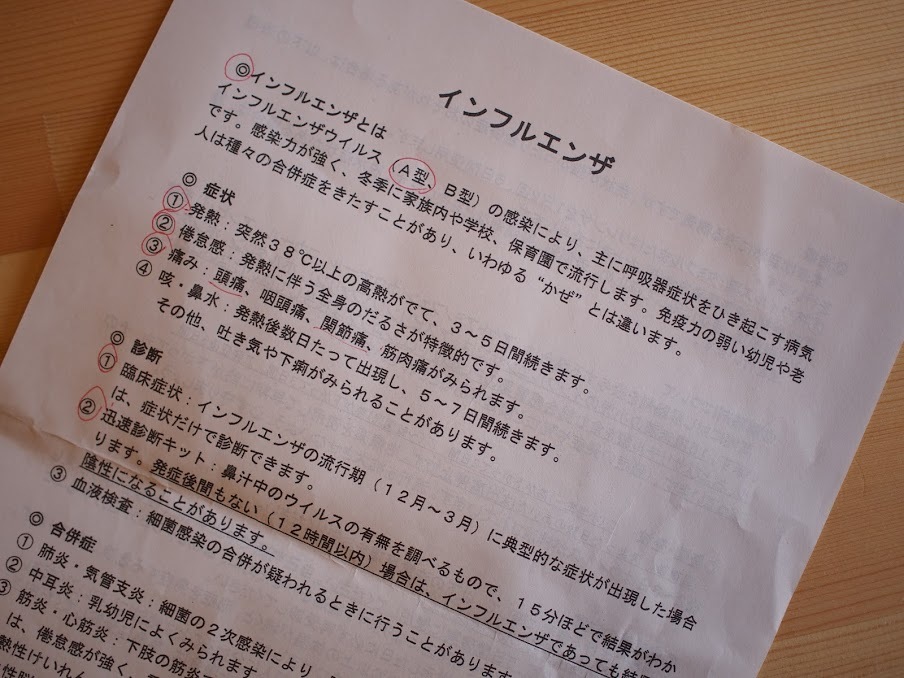 インフルエンザ
◎インフルエンザとは
インフルエンザウイルス(A型、B型)の感染により、主に呼吸器症状をひき起こす病気
です。感染力が強く、冬季に家族内や学校、保育園で流行します。免疫力の弱い幼児や老
人は種々の合併症をきたすことがあり、いわゆる“かぜ”とは違います。
◎ 症状
① 発熱:突然38℃以上の高熱がでて、3~5日間続きます。
② 倦怠感:発熱に伴う全身のだるさが特徴的です。
③ 痛み:頭痛、咽頭痛、関節痛、筋肉痛がみられます。
④ 咳・鼻水:発熱後数日たって出現し、5~7日間続きます。
その他、吐き気や下痢がみられることがあります。
◎ 診断
① 臨床症状:インフルエンザの流行期(12月~3月)に典型的な症状が出現した場合
は、症状だけで診断できます。
② 迅速診断キット:鼻汁中のウイルスの有無を調べるもので、15分ほどで結果がわか
ります。発症後間もない(12時間以内)場合は、インフルエンザであっても
陰性になることがあります。
③ 血液検査:細菌感染の合併が疑われるときに行うことがあります
◎ 合併症
① 肺炎・気管支炎:細菌の2次感染により
② 中耳炎:乳幼児によくみられます
③ 筋炎・心筋炎:下肢の筋炎
は、倦怠感が強く、
熱性けいれん